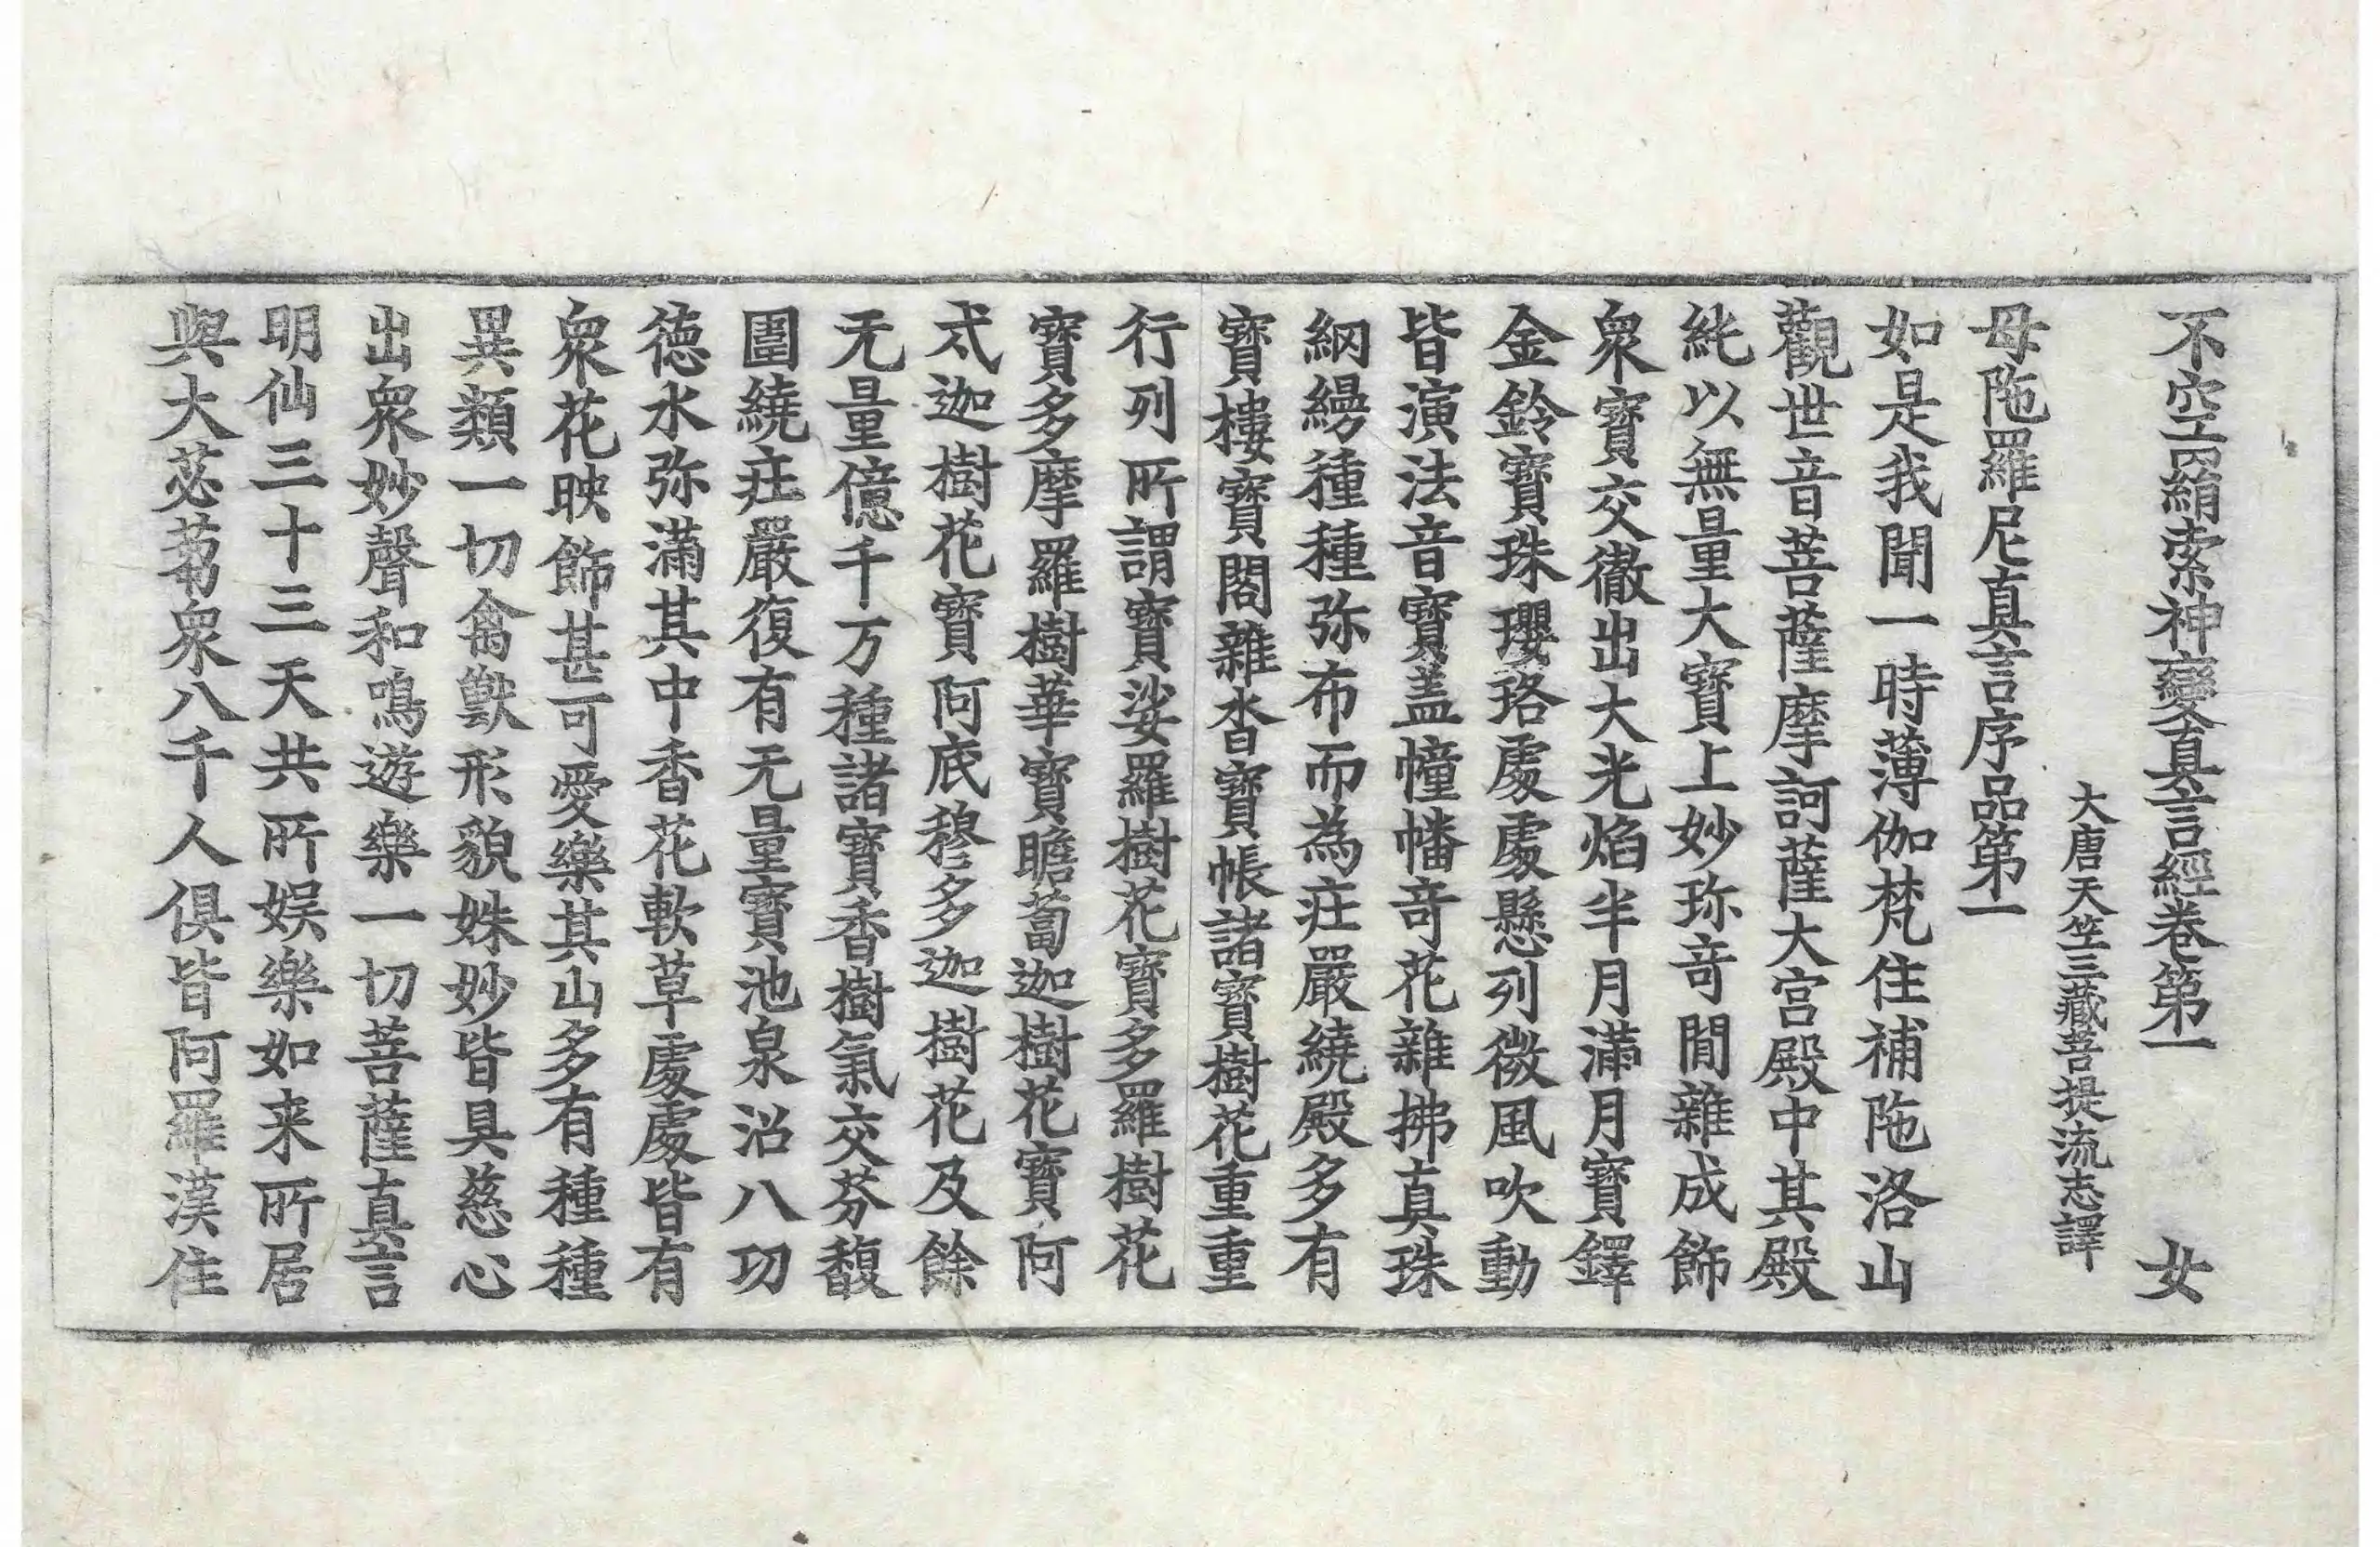 不空羂索神變真言經卷第一 女
大唐天竺三藏菩提流志譯
母陁羅尼真言序品第一
如是我聞一時薄伽梵住補陁洛山
觀世音菩薩摩訶薩大宮殿中其殿
純以無量大寶上妙珎竒閒雜成飾
衆寶交徹出大光焰半月滿月寶鐸
金鈴寶珠瓔珞處處懸列微風吹動
皆演法音寶盖幢幡竒花雜拂真珠
網縵種種弥布而為莊嚴繞殿多有
寶樓寶閣雜沓寶帳諸寶樹花重重
行列所謂寶娑羅樹花寶多羅樹花
寶多摩羅樹華寶瞻蔔迦樹花寶阿
弍迦樹花寶阿底穆多迦樹花及餘
无量億千万種諸寶香樹氣交芬馥
圍繞莊嚴復有无量寶池泉沼八功
德水弥滿其中香花軟草處處皆有
衆花映飾甚可愛樂其山多有種種
異類一切禽獸形貌姝妙皆具慈心
出衆妙聲和鳴遊樂一切菩薩真言
明仙三十三天共所娛樂如来所居
與大苾芻衆八千人俱皆阿羅漢住